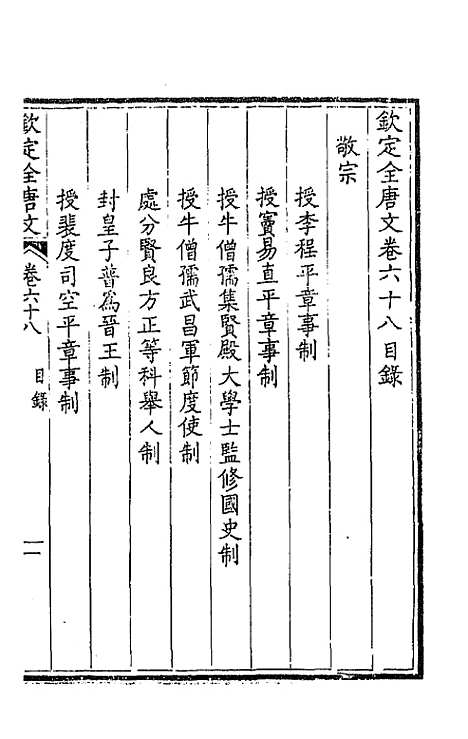 欽定全唐文卷六十八目錄
敬宗
授李程平章事制
授竇易直平章事制
授牛僧孺集賢殿大學士監修國史制
授牛僧孺武昌軍節度使制
處分賢良方正等科舉人制
封皇子普為晉王制
授裴度司空平章事制
欽定全唐文 卷六十八 目錄 一